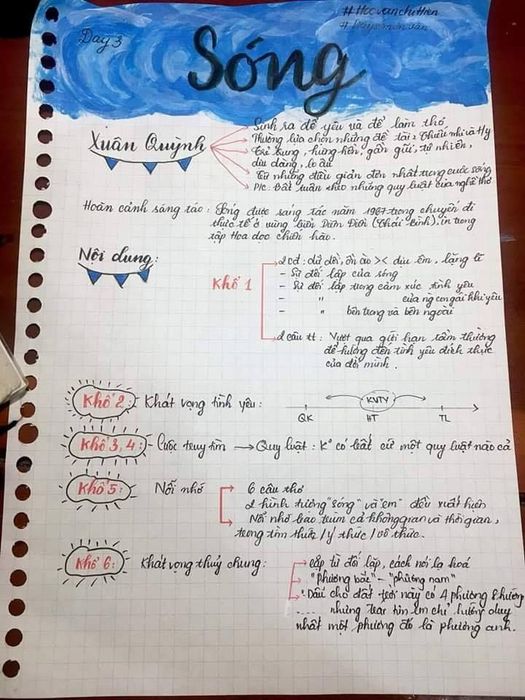 #Hocvanchihien
Day 3
Sóng
Xuân Quỳnh
Sinh ra để yêu và để làm thơ
Thường lựa chọn những đề tài: thiếu nhi và ty
Trẻ trung, hồng hền, gần gũi, tự nhiên,
dịu dàng, lo âu
Từ những điều giản đơn nhất trong cuộc sống
P/c: Bất tuân theo những quy luật của nghệ thơ
Hoàn cảnh sáng tác: Sóng được sáng tác năm 1967 trong chuyến đi
thực tế ở vùng biển Diêm Điền (Thái Bình), in trong
tập Hoa dọc chiến hào.
Nội dung:
Khổ 1
2 cđ: dữ dội, ồn ào >< dịu êm, lặng lẽ
- Sự đối lập của sóng
- Sự đối lập trong cảm xúc tình yêu
- " của ng con gái khi yêu
- " bên trong và bên ngoài
2 câu tt: Vượt qua giới hạn tầm thường
để hướng đến tình yêu đích thực
của đời mình.
Khổ 2: Khát vọng tình yêu: KVTY
QK HT TL
Khổ 3, 4: Cuộc truy tìm → Quy luật: K° có bất cứ một quy luật nào cả
Khổ 5: Nỗi nhớ
6 câu thơ
2 hình tượng "sóng" và "em" đều xuất hiện
Nỗi nhớ bao trùm cả không gian và thời gian,
trong tìm thức / ý thức / vô thức.
Khổ 6: Khát vọng thuỷ chung:
cặp từ đối lập, cách nói lạ hoá
"phương bắc" - "phương nam"
"Dẫu cho đất trời này có 4 phương 8 hướng
.... nhưng trái tim em chỉ hướng duy
nhất một phương đó là phương anh.